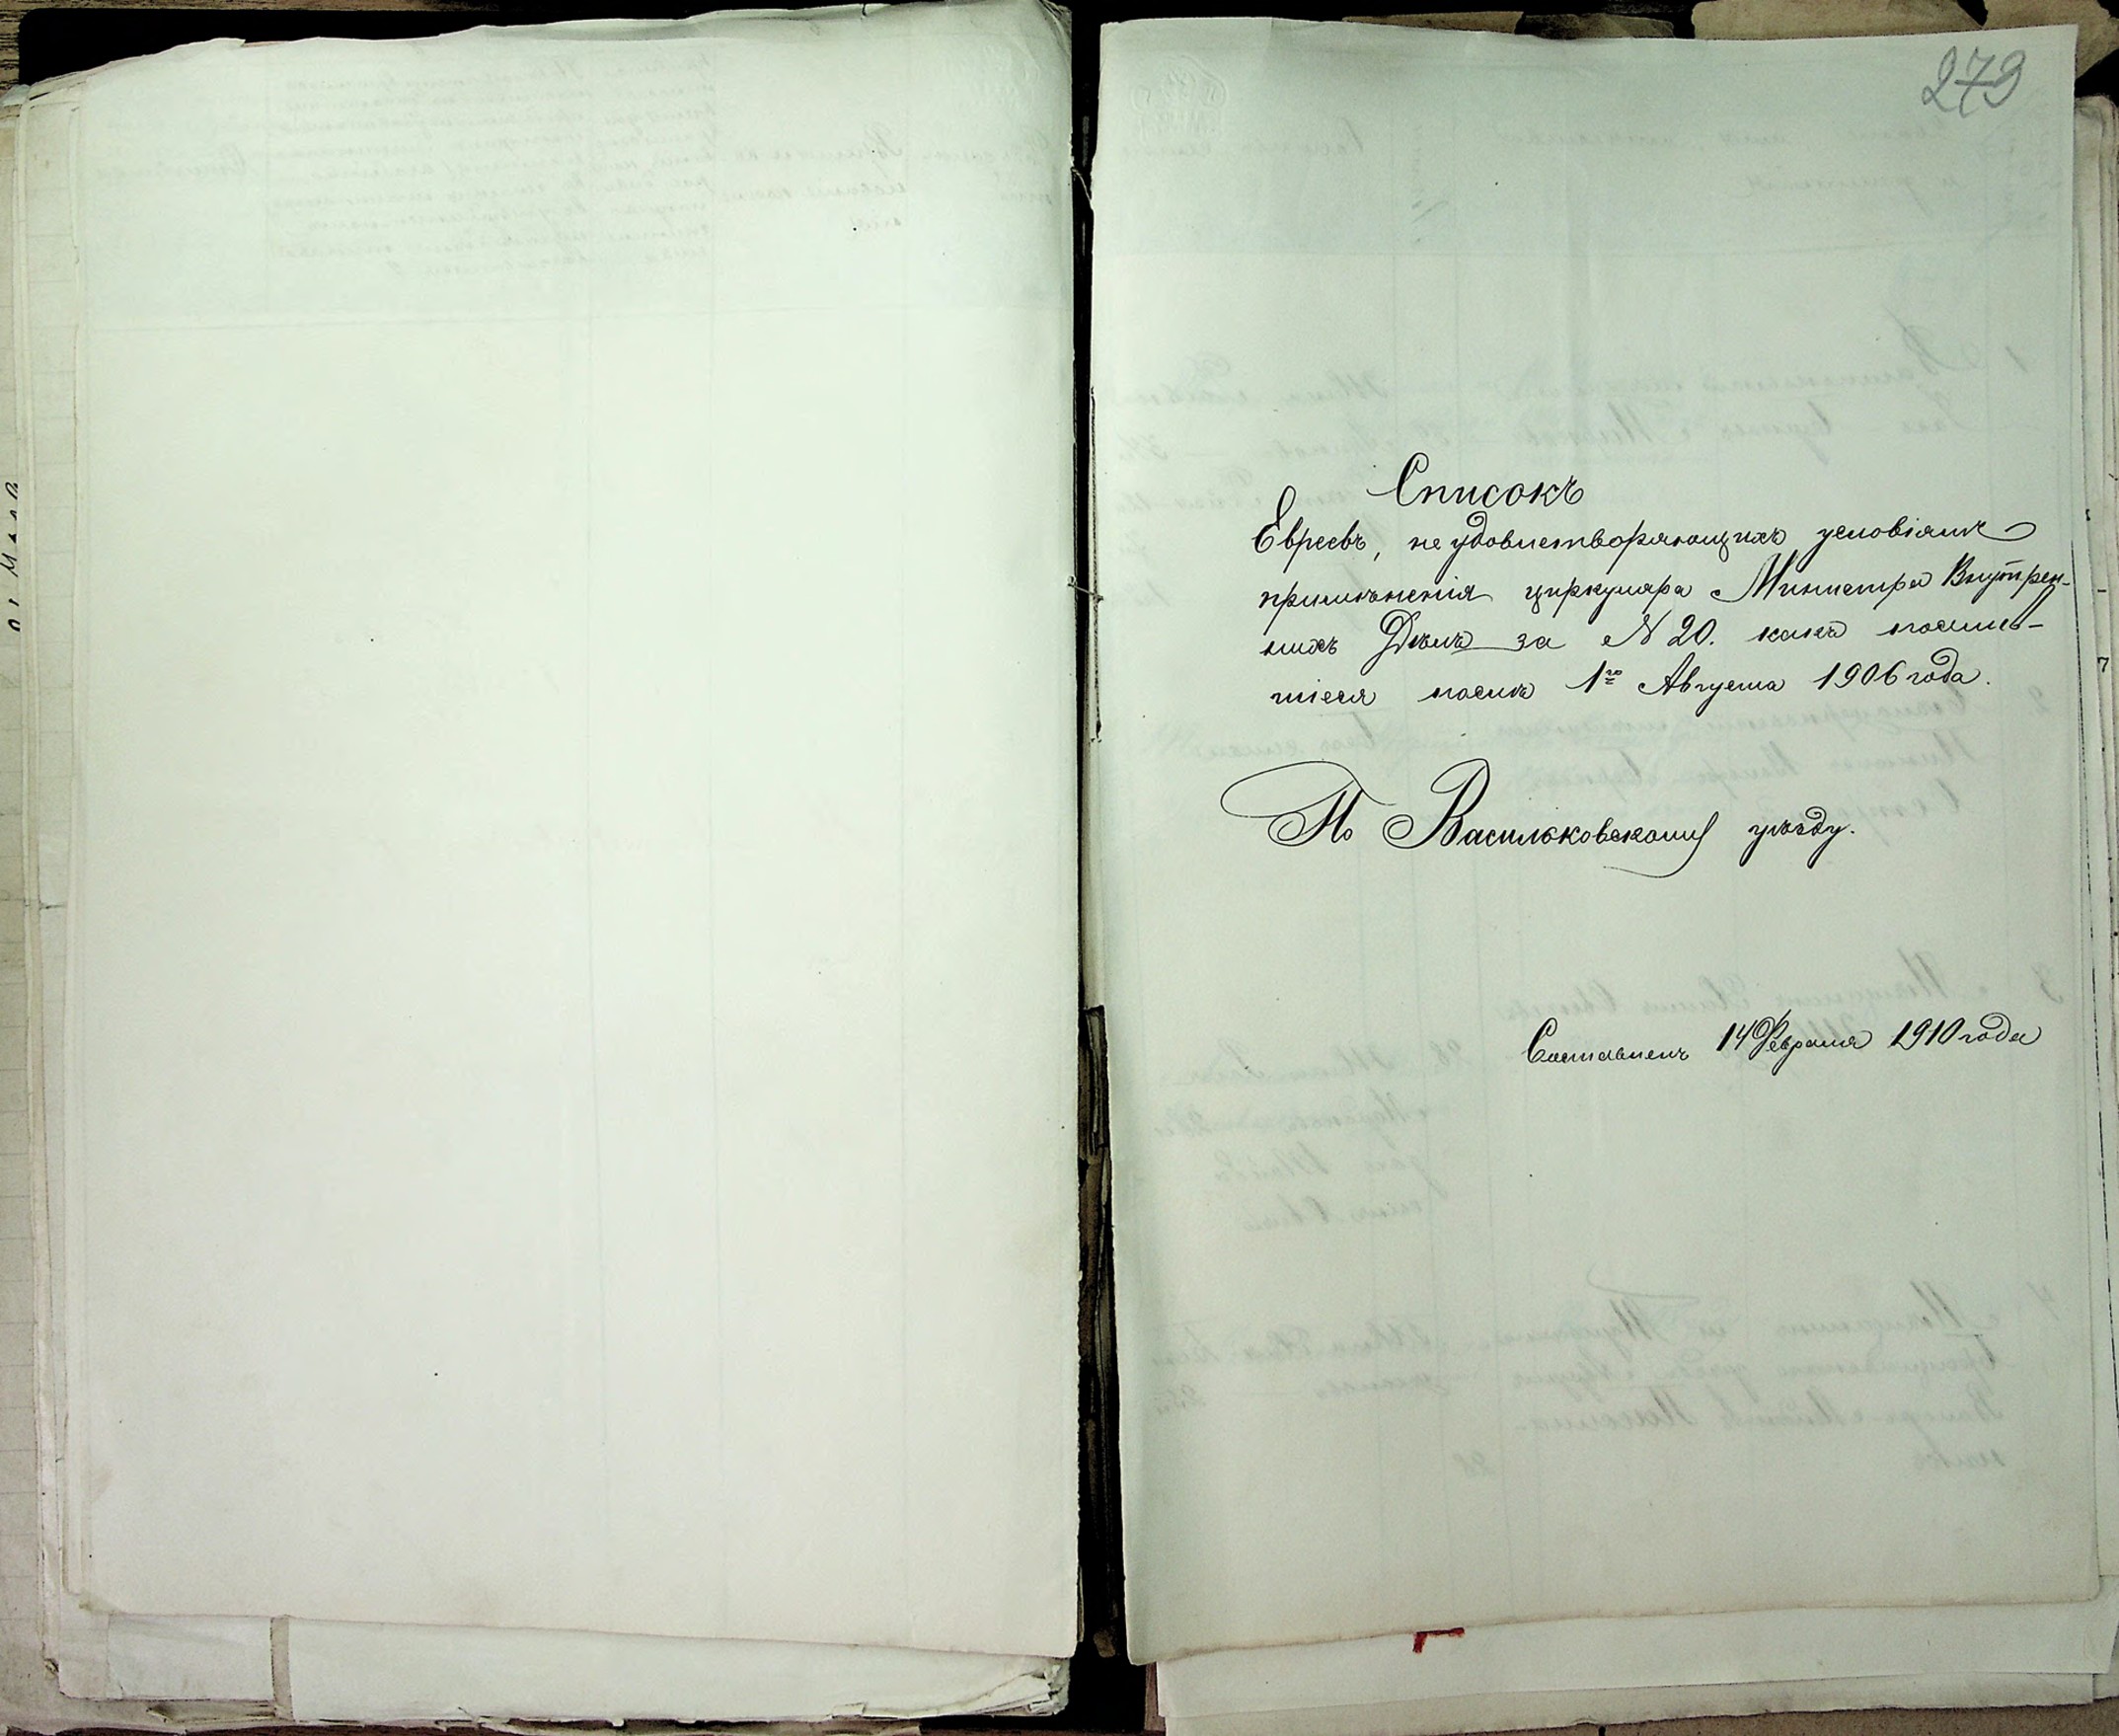 279
Списокъ
Евреевъ, не удовлетворяющихъ условіямъ
примѣненія циркуляра Министра Внутрен-
нихъ Дѣлъ за № 20. какъ поселив-
шіеся послѣ 1го Августа 1906 года.
По Васильковскому уѣзду.
Составленъ 14 Февраля 1910 года